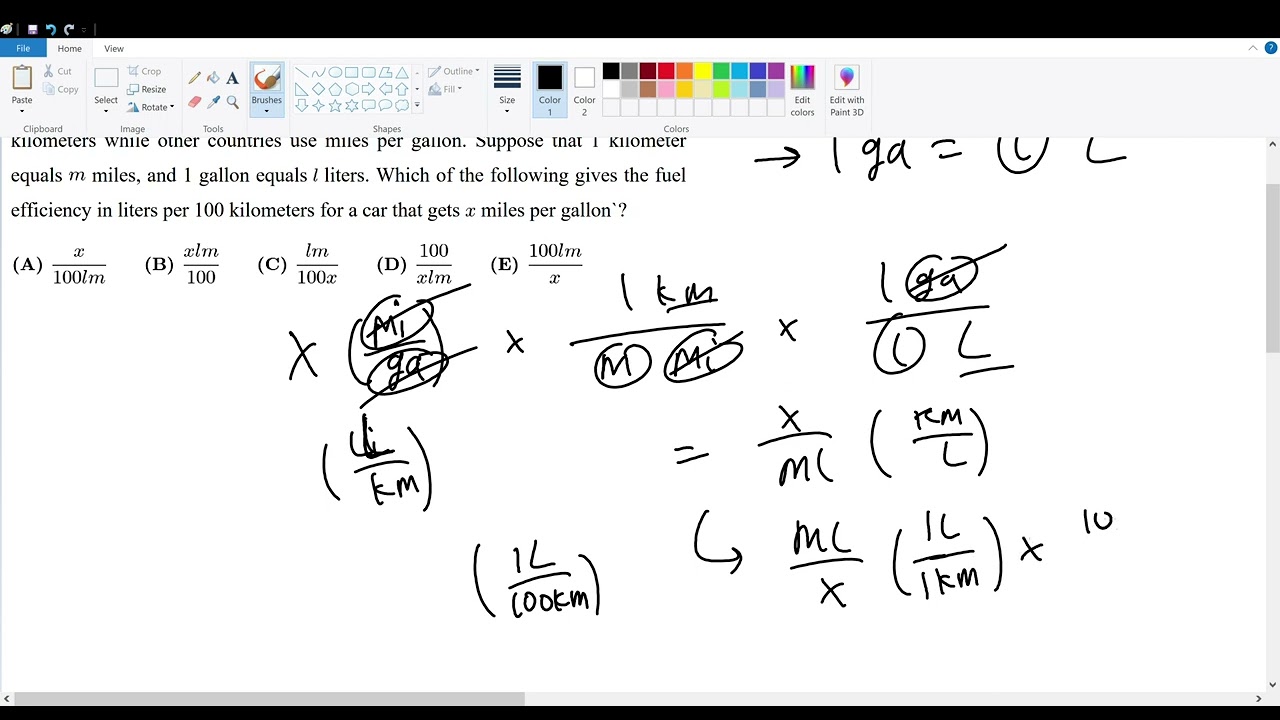 File Home View
Paste Cut Copy Select Crop Resize Rotate A Brushes Outline Fill Size Color 1 Color 2 Edit colors Edit with Paint 3D
Clipboard Image Tools Shapes Colors
kilometers while other countries use miles per gallon. Suppose that 1 kilometer
equals m miles, and 1 gallon equals l liters. Which of the following gives the fuel
efficiency in liters per 100 kilometers for a car that gets x miles per gallon`?
→ 1 ga = l L
(A) x/100lm (B) xlm/100 (C) lm/100x (D) 100/xlm (E) 100lm/x
x (Mi/ga) × 1 km/m Mi × 1 ga/l L
(L/km)
= x/ml (km/L)
↳ ml/x (1L/1km) × 10
(1L/100km)